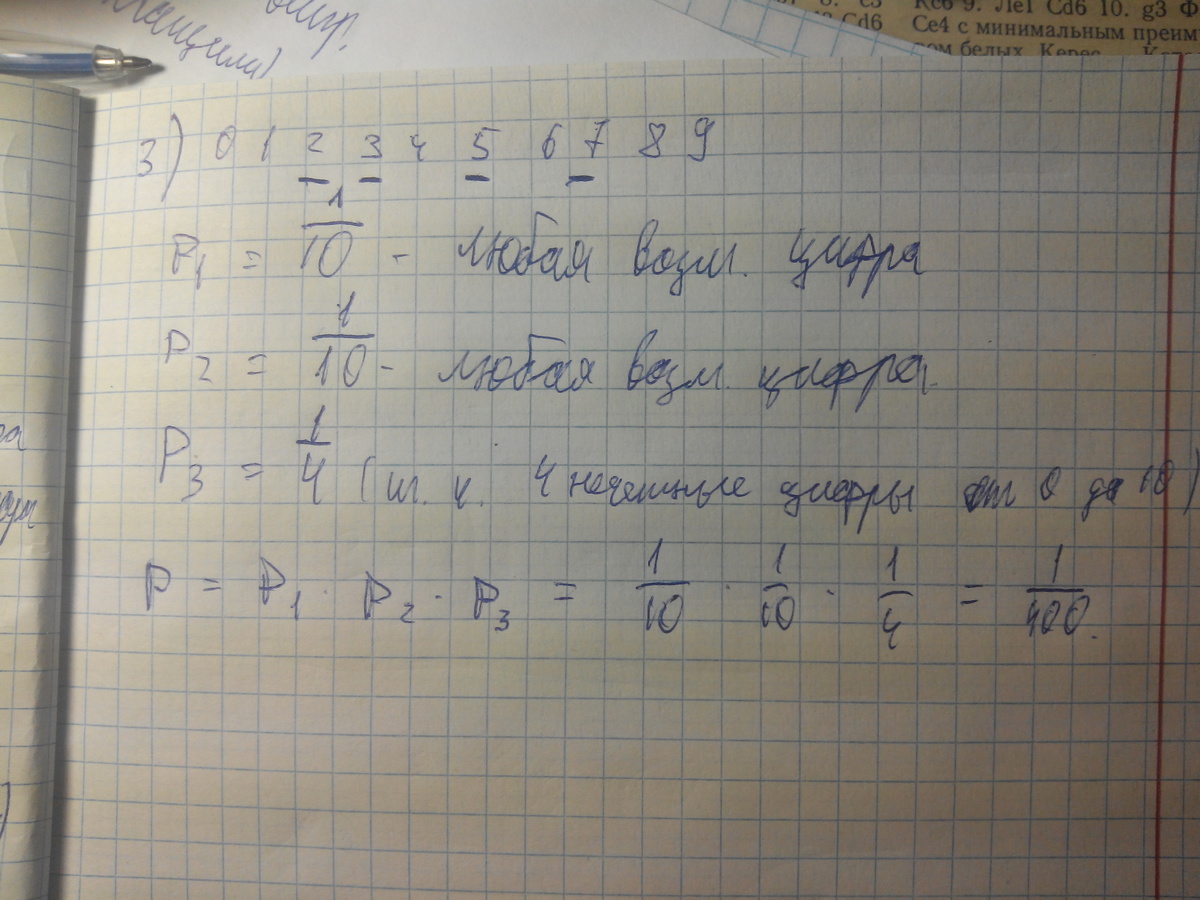 выигр.
8. c3 Кc6 9. Лe1 Cd6 10. g3 Ф
Cd6 Ce4 с минимальным преим
ром белых. Керес
3) 0 1 2 3 4 5 6 7 8 9
P1 = 1/10 - любая возм. цифра
P2 = 1/10 - любая возм. цифра.
P3 = 1/4 (т. к. 4 нечетные цифры от 0 до 10)
P = P1 · P2 · P3 = 1/10 · 1/10 · 1/4 = 1/400.